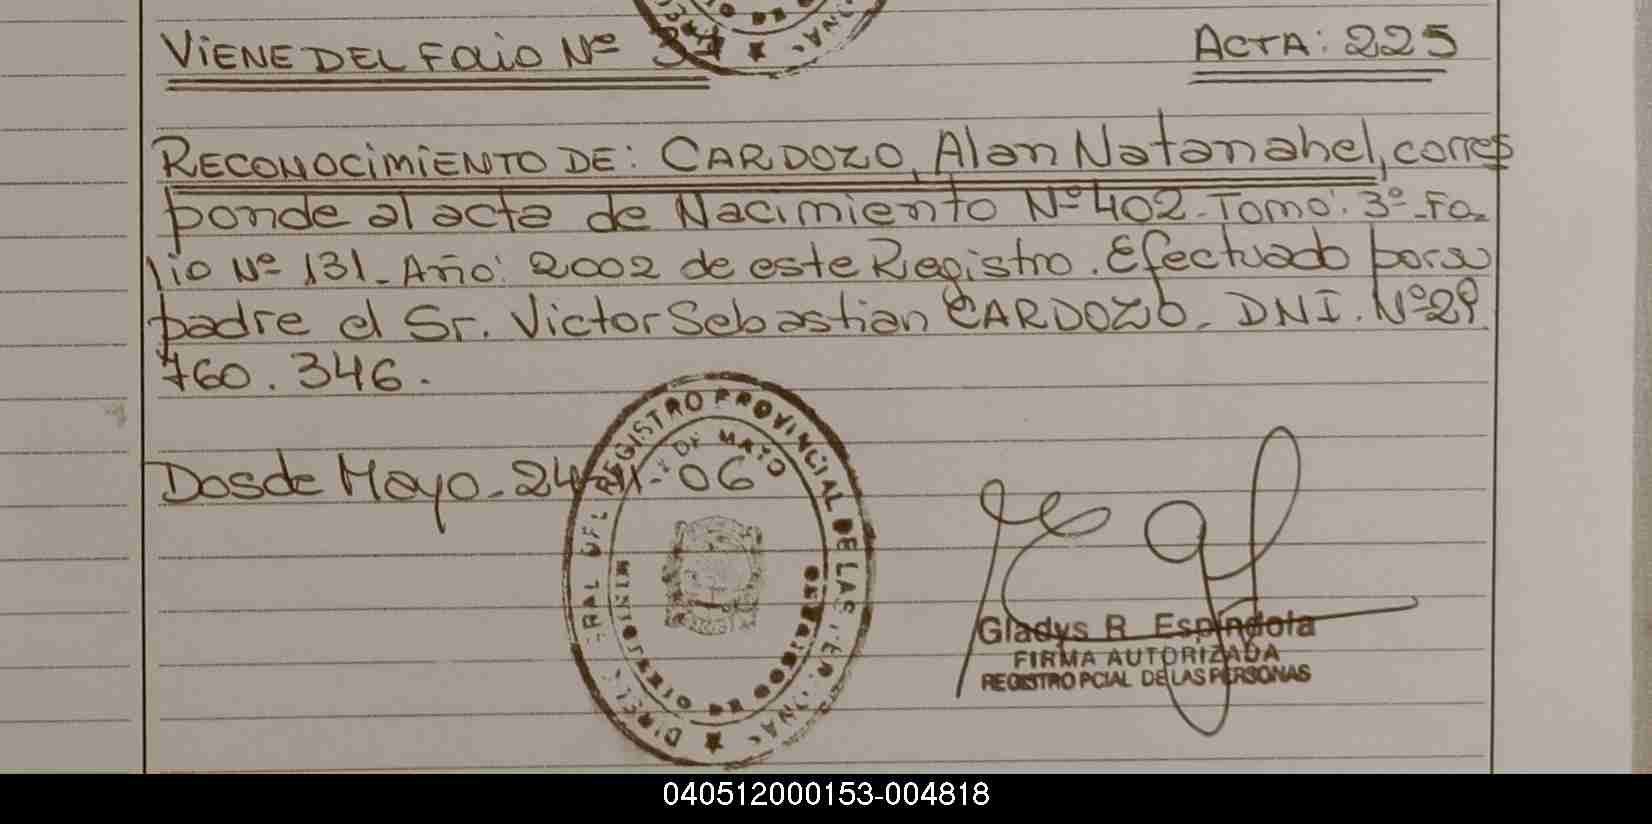 VIENE DEL FOLIO Nº 37
ACTA: 225
RECONOCIMIENTO DE: CARDOZO, Alan Natanahel, corres
ponde al acta de Nacimiento Nº 402. Tomo: 3º. Fo-
lio Nº 131. Año: 2002 de este Registro. Efectuado por su
padre el Sr. Victor Sebastian CARDOZO. DNI. Nº 29.
760.346.
REGISTRO PROVINCIAL DE LAS
DE MAYO
Dosde Mayo. 24 06
Gladys R. Espindola
FIRMA AUTORIZADA
REGISTRO PCIAL DE LAS PERSONAS
040512000153-004818